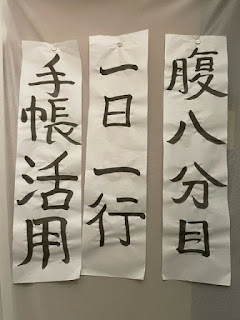 腹八分目
一日一行
手帳活用